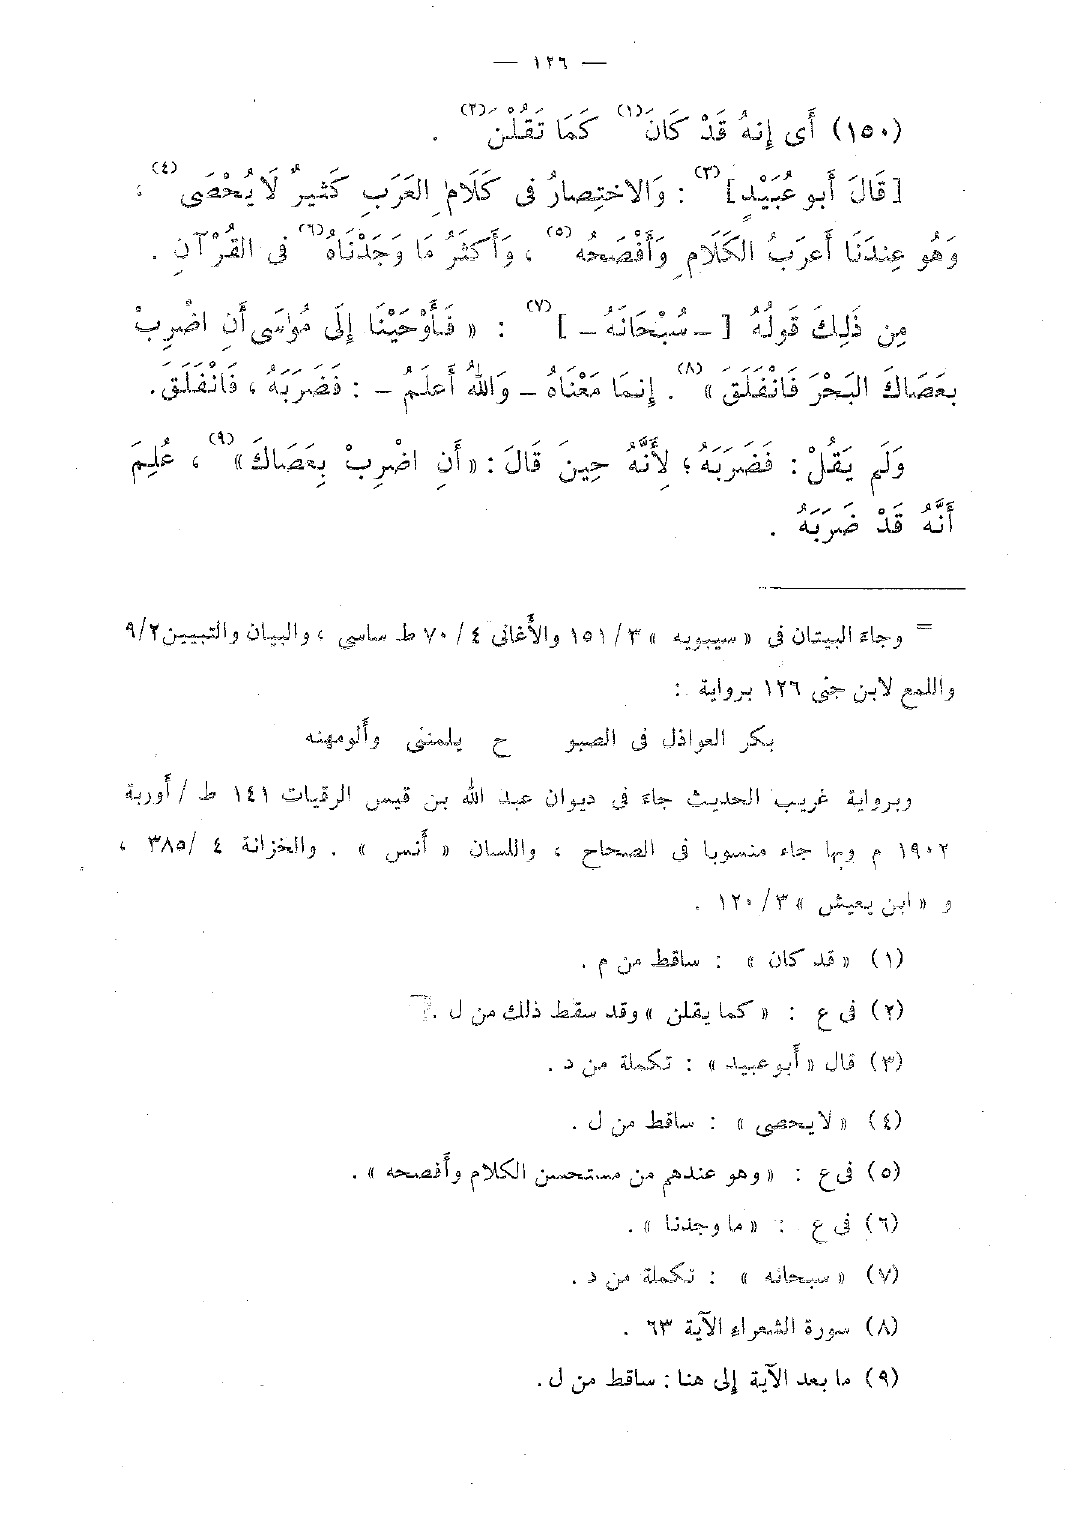 — ١٢٦ —
(١٥٠) أَى إِنهُ قَدْ كَانَ(١) كَمَا تَقُلْنَ(٢) .
[قَالَ أَبو عُبَيْدٍ](٣) : وَالاختِصارُ فى كَلَامِ العَرَبِ كَثيرٌ لَا يُحْصَى(٤) ،
وَهُو عِندَنَا أَعرَبُ الكَلَامِ وَأَفْصَحُه(٥) ، وَأَكثَرُ مَا وَجَدْنَاهُ(٦) فى القُرْآنِ .
مِن ذَلِكَ قَولُهُ [ – سُبْحَانَهُ – ](٧) : « فَأَوْحَيْنَا إِلَى مُوسَى أَنِ اضْرِبْ
بِعَصَاكَ البَحْرَ فَانْفَلَقَ »(٨) . إِنمَا مَعْنَاهُ – وَاللهُ أَعلَمُ – : فَضَرَبَهُ ، فَانْفَلَقَ.
وَلَم يَقُلْ : فَضَرَبَهُ ؛ لِأَنَّهُ حِينَ قَالَ : «أَنِ اضْرِبْ بِعَصَاكَ»(٩) ، عُلِمَ
أَنَّهُ قَدْ ضَرَبَهُ .
= وجاء البيتان فى « سيبويه » ٣/ ١٥١ والأغانى ٤/ ٧٠ ط ساسى ، والبيان والتبيين ٢/ ٩
واللمع لابن جنى ١٢٦ برواية :
بكر العواذل فى الصبو ح يلمننى وألومهنه
وبرواية غريب الحديث جاء فى ديوان عبد الله بن قيس الرقيات ١٤١ ط / أوربة
١٩٠٢ م وبها جاء منسوبا فى الصحاح ، واللسان « أنس » . والخزانة ٤ /٣٨٥ ،
و « ابن يعيش » ٣/ ١٢٠ .
(١) « قد كان » : ساقط من م .
(٢) فى ع : « كما يقلن » وقد سقط ذلك من ل .
(٣) قال « أبو عبيد » : تكملة من د .
(٤) « لا يحصى » : ساقط من ل .
(٥) فى ع : « وهو عندهم من مستحسن الكلام وأفصحه » .
(٦) فى ع : « ما وجدنا » .
(٧) « سبحانه » : تكملة من د .
(٨) سورة الشعراء الآية ٦٣ .
(٩) ما بعد الآية إلى هنا : ساقط من ل .